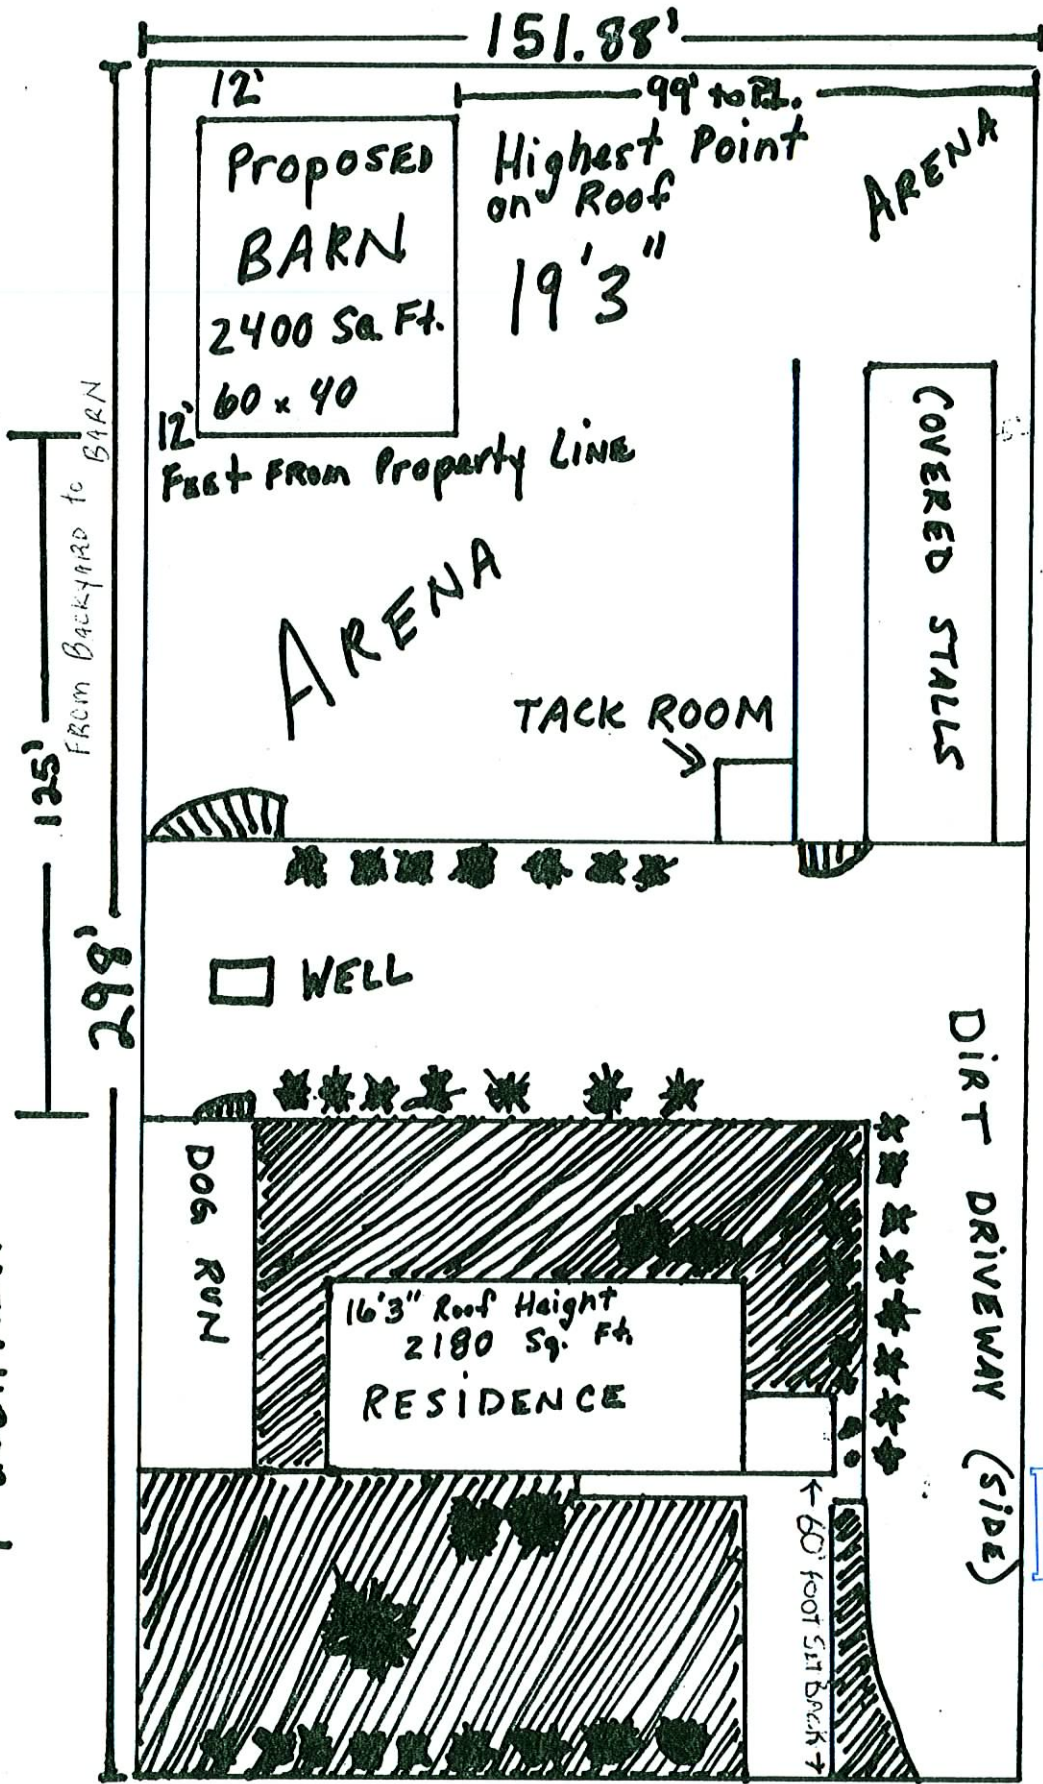 151.88'
12'
99' to P.L.
Proposed
BARN
2400 Sq. Ft.
60 x 40
Highest Point
on Roof
19'3"
ARENA
12'
Feet From Property Line
COVERED STALLS
From Backyard to BARN
125'
298'
ARENA
TACK ROOM
WELL
DIRT DRIVEWAY (SIDE)
DOG RUN
16'3" Roof Height
2180 Sq. Ft.
RESIDENCE
← 60' FOOT SET BACK →